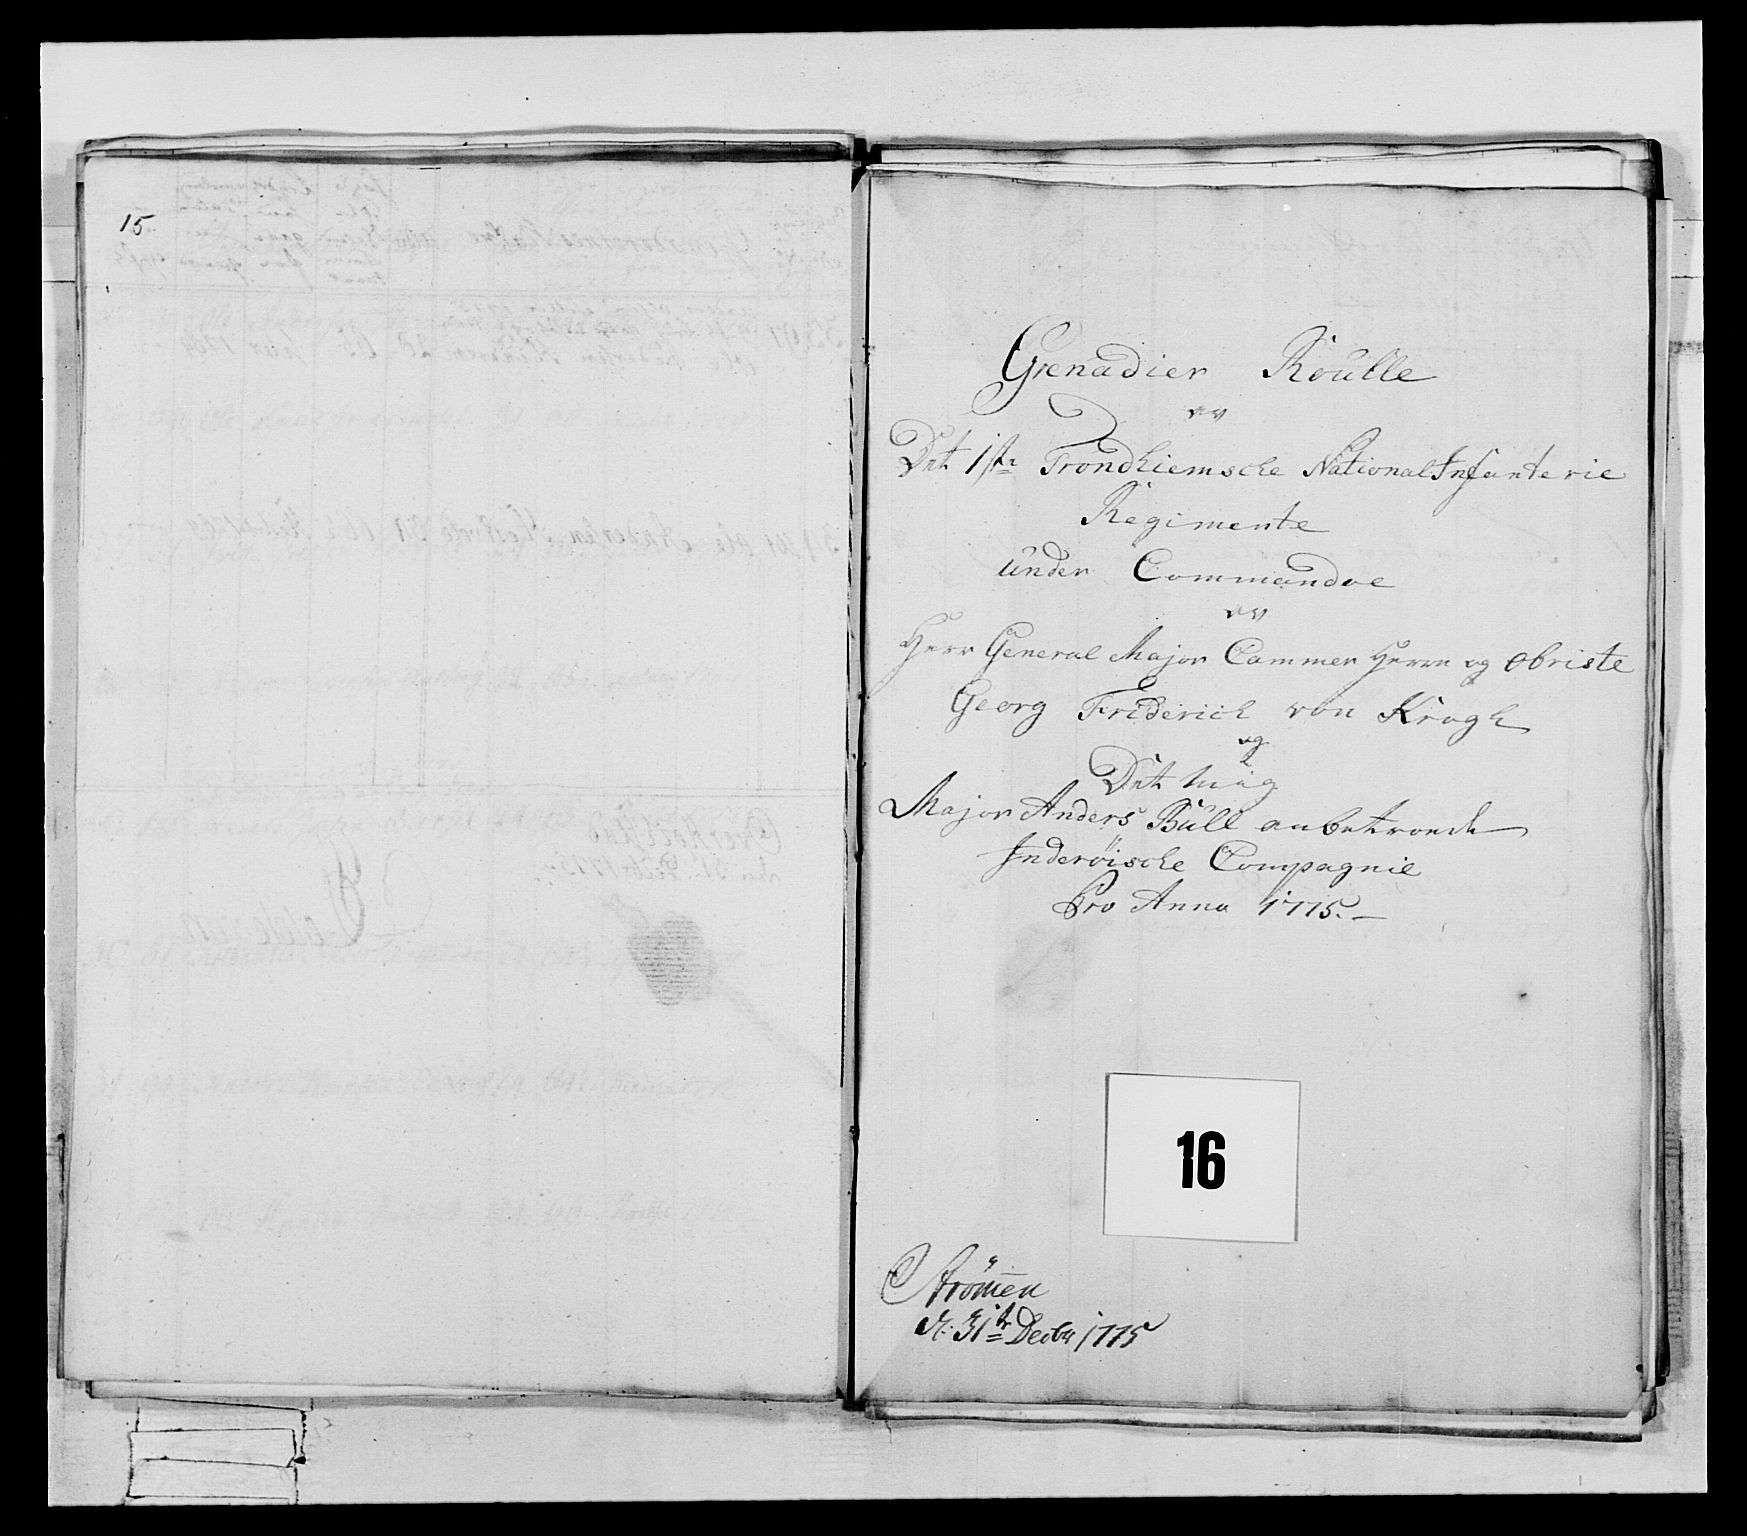 15.
Grenadier Roulle
av
Det 1ste Trondhiemsche National Infanterie
Regimente
under Commandoe
av
Herr General Major Cammer Herre og Obriste
Georg Friderich von Krogh
og
Det mig
Major Anders Bull anbetroede
Inderöiske Compagnie
Pro Anno 1775.
16
Strömen
d: 31te Decbr 1775